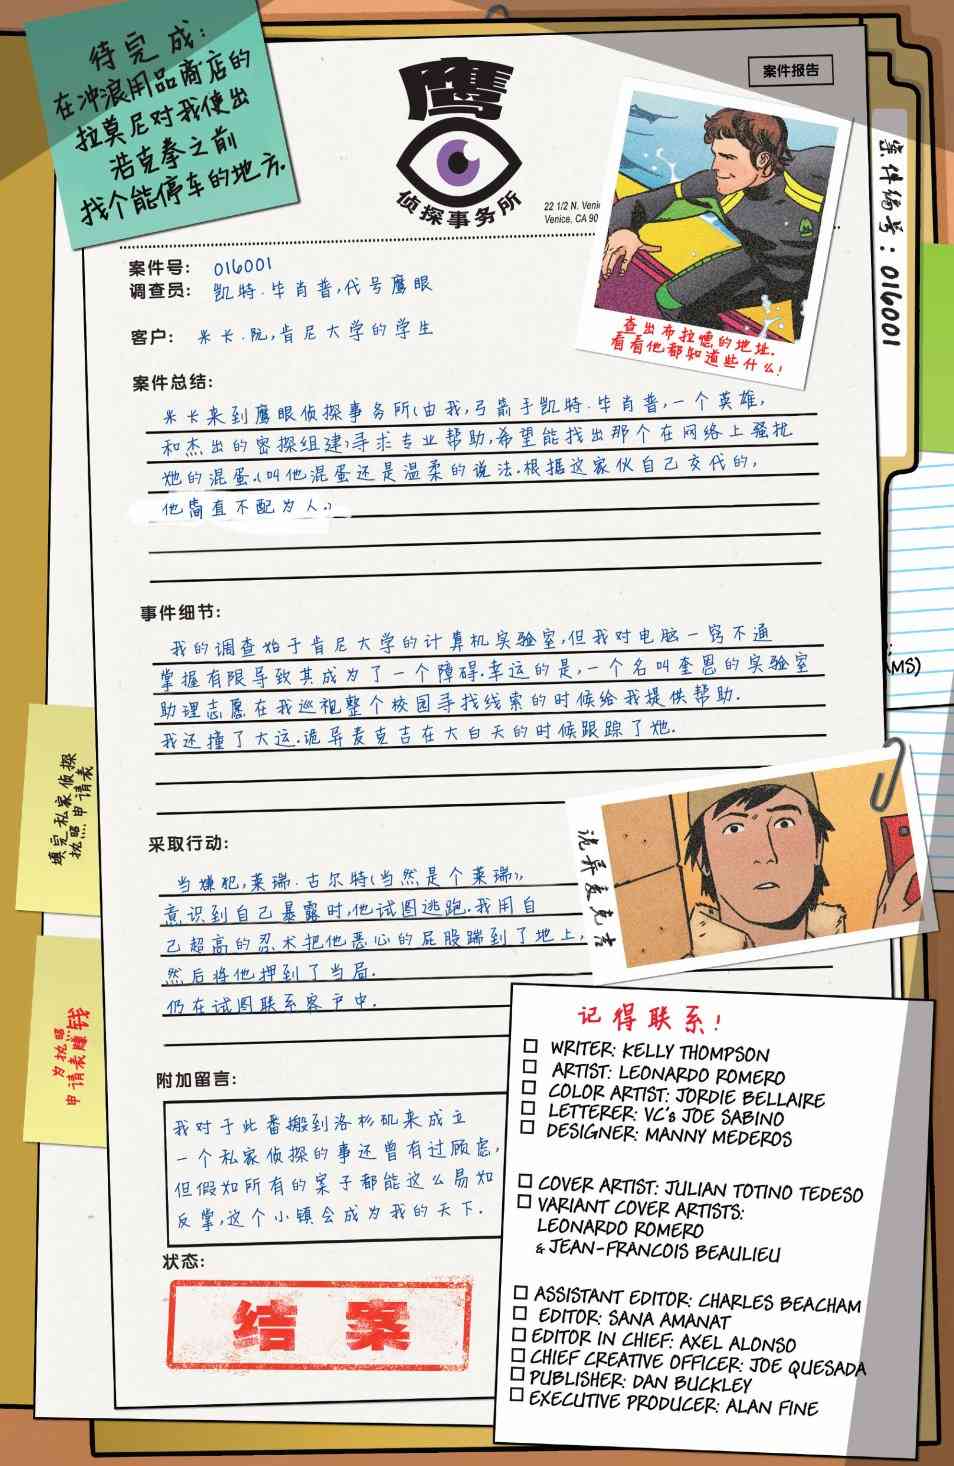 待完成:
在冲浪用品商店的
拉莫尼对我使出
浩克拳之前
找个能停车的地方.
鹰
侦探事务所
22 1/2 N. Veni
Venice, CA 90
案件报告
案件编号: 016001
案件号: 016001
调查员: 凯特.毕肖普,代号鹰眼
客户: 米卡.阮,肯尼大学的学生
查出布拉德的地址.
看看他都知道些什么!
案件总结:
米卡来到鹰眼侦探事务所(由我,弓箭手凯特.毕肖普,一个英雄,
和杰出的密探组建)寻求专业帮助,希望能找出那个在网络上骚扰
她的混蛋.(叫他混蛋还是温柔的说法.根据这家伙自己交代的,
他简直不配为人.)
事件细节:
我的调查始于肯尼大学的计算机实验室,但我对电脑一窍不通
掌握有限导致其成为了一个障碍.幸运的是,一个名叫奎恩的实验室
助理志愿在我巡视整个校园寻找线索的时候给我提供帮助.
我还撞了大运.诡异麦克吉在大白天的时候跟踪了她.
MS)
填完私家侦探
执照申请表
诡异麦克吉
采取行动:
当嫌犯,莱瑞.古尔特(当然是个莱瑞),
意识到自己暴露时,他试图逃跑.我用自
己超高的忍术把他恶心的屁股踹到了地上,
然后将他押到了当局.
仍在试图联系客户中.
为执照
申请表赚钱
附加留言:
我对于此番搬到洛杉矶来成立
一个私家侦探的事还曾有过顾虑,
但假如所有的案子都能这么易如
反掌,这个小镇会成为我的天下.
状态:
结案
记得联系!
WRITER: KELLY THOMPSON
ARTIST: LEONARDO ROMERO
COLOR ARTIST: JORDIE BELLAIRE
LETTERER: VC's JOE SABINO
DESIGNER: MANNY MEDEROS
COVER ARTIST: JULIAN TOTINO TEDESO
VARIANT COVER ARTISTS:
LEONARDO ROMERO
& JEAN-FRANCOIS BEAULIEU
ASSISTANT EDITOR: CHARLES BEACHAM
EDITOR: SANA AMANAT
EDITOR IN CHIEF: AXEL ALONSO
CHIEF CREATIVE OFFICER: JOE QUESADA
PUBLISHER: DAN BUCKLEY
EXECUTIVE PRODUCER: ALAN FINE